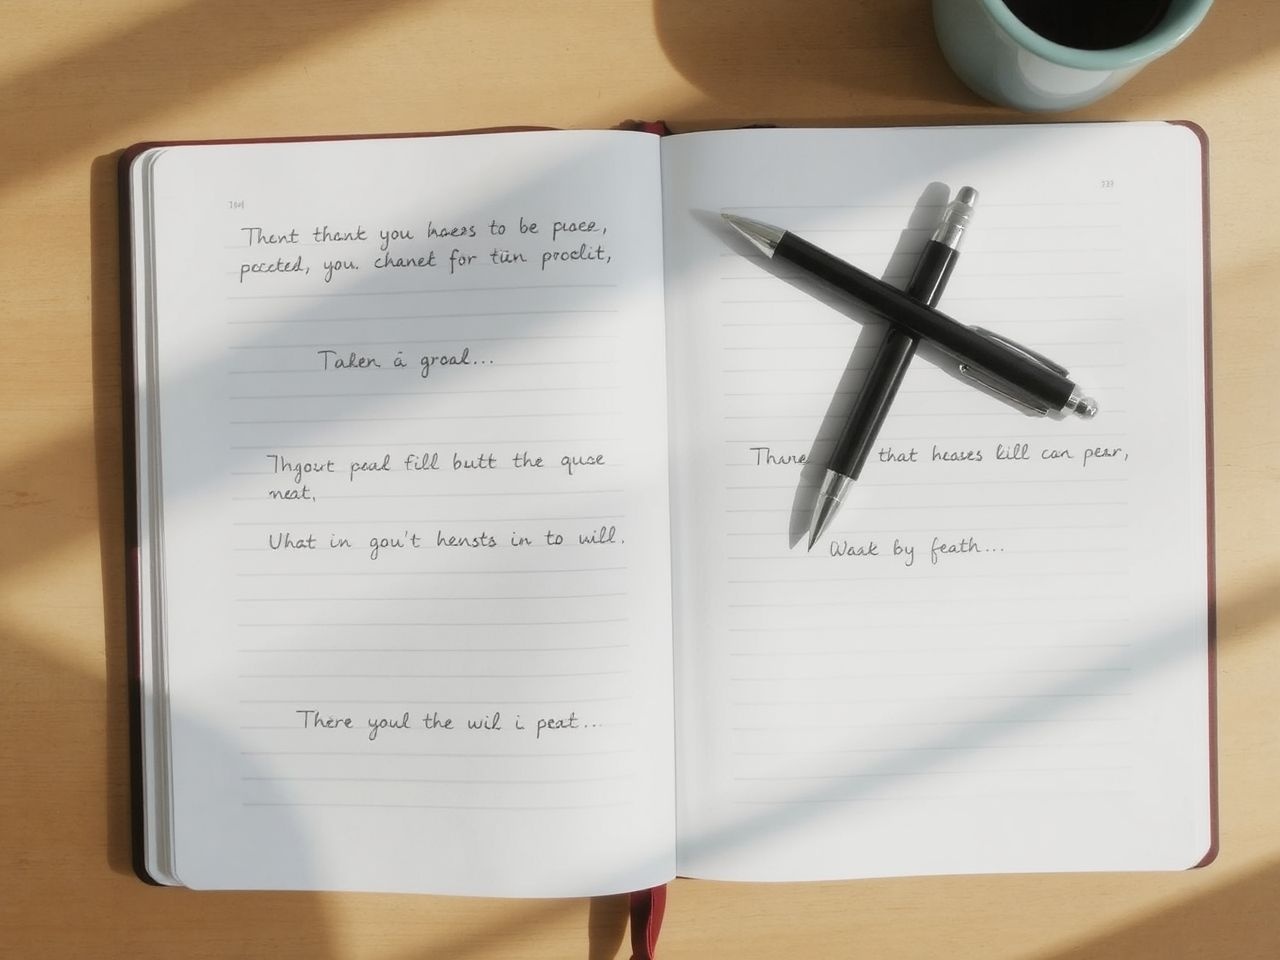 Thent thank you haess to be piaee,
pected, you. chanet for tün proclit,
Taken á groal...
Thgout peal fill butt the quse
neat,
Uhat in gou't hensts in to will.
There youl the wil i peat...
that heases kill can pear,
Waak by feath...